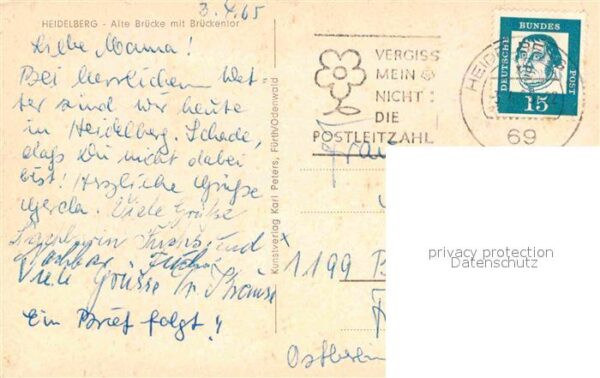 3.4.65
HEIDELBERG - Alte Brücke mit Brückentor
Liebe Mamma!
Bei herrlichem Wet-
ter sind wir heute
in Heidelberg. Schade,
daß Du nicht dabei
bist! Herzliche Grüße
Gerda. Viele Grüße
und
Nachbar
Viele Grüsse
Ein Brief folgt!
Kunstverlag Karl Peters, Fürth/Odenwald
VERGISS
MEIN
NICHT:
DIE
POSTLEITZAHL
HEIDELBERG
69
DEUTSCHE BUNDES POST
15
Frau
1199 B
Ostberlin
privacy protection
Datenschutz